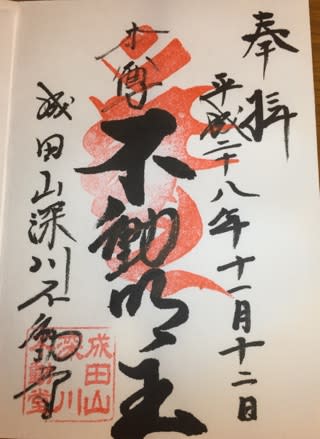 奉拝
平成二十八年十一月十二日
本尊
不動明王
成田山深川不動堂
成田山
深川
不動堂